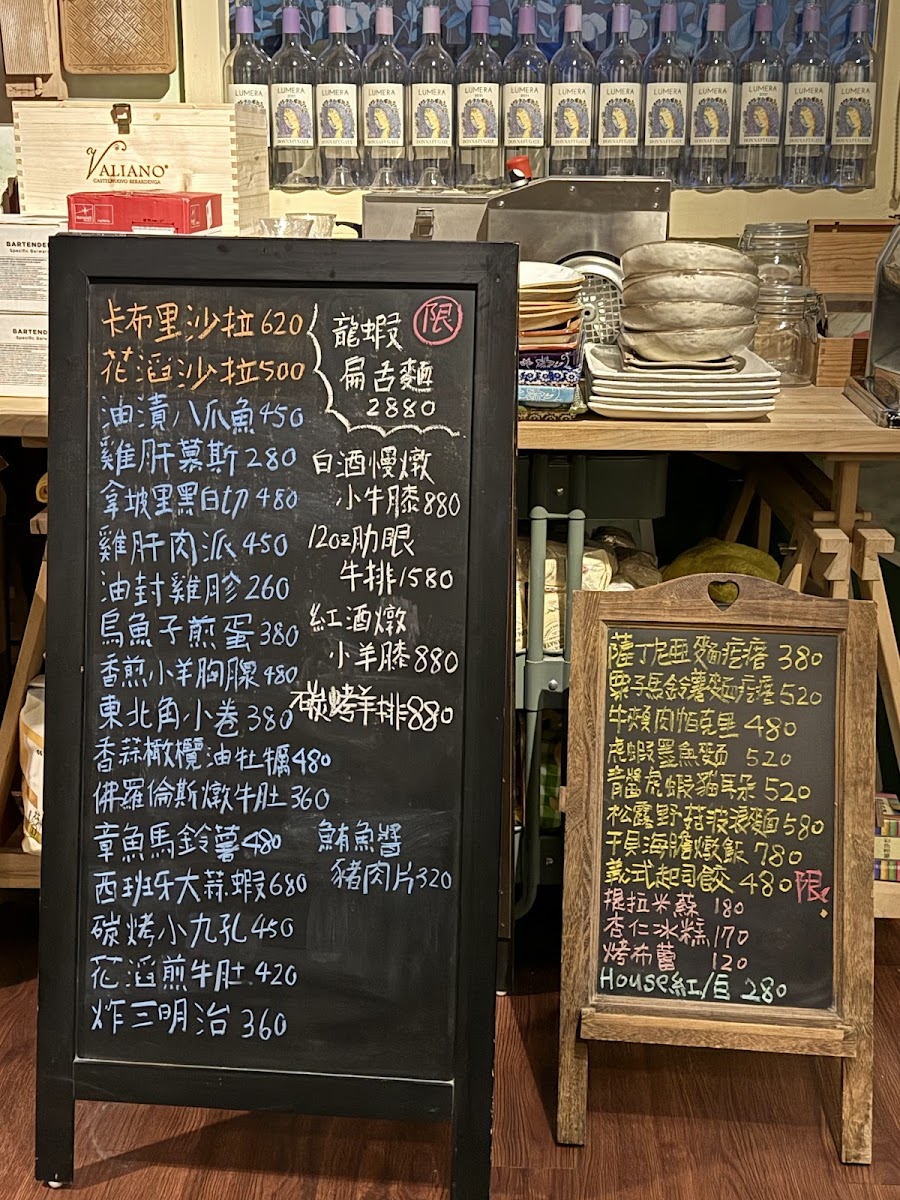 LUMERA LUMERA LUMERA LUMERA LUMERA LUMERA LUMERA LUMERA LUMERA LUMERA LUMERA LUMERA LUMERA
DONNAFUGATA
VALIANO
CASTELNUOVO BERARDENGA
BARTENDER
Specific Barware
BARTENDER
卡布里沙拉620
花滔沙拉500
油漬八爪魚450
雞肝慕斯280
拿坡里黑白切480
雞肝肉派450
油封雞胗260
烏魚子煎蛋380
香煎小羊胸腺480
東北角小卷380
香蒜橄欖油牡蠣480
佛羅倫斯燉牛肚360
章魚馬鈴薯480
西班牙大蒜蝦680
碳烤小九孔450
花滔煎牛肚420
炸三明治360
限
龍蝦
扁舌麵
2880
白酒慢燉
小牛膝880
12oz肋眼
牛排1580
紅酒燉
小羊膝880
碳烤羊排880
鮪魚醬
豬肉片320
薩丁尼亞麵疙瘩 380
栗子馬鈴薯麵疙瘩520
牛頰肉帕克里480
虎蝦墨魚麵 520
青醬虎蝦貓耳朵520
松露野菇波浪麵580
干貝海膽燉飯780
義式起司餃480限
提拉米蘇 180
杏仁冰糕170
烤布蕾 120
House紅/白 280